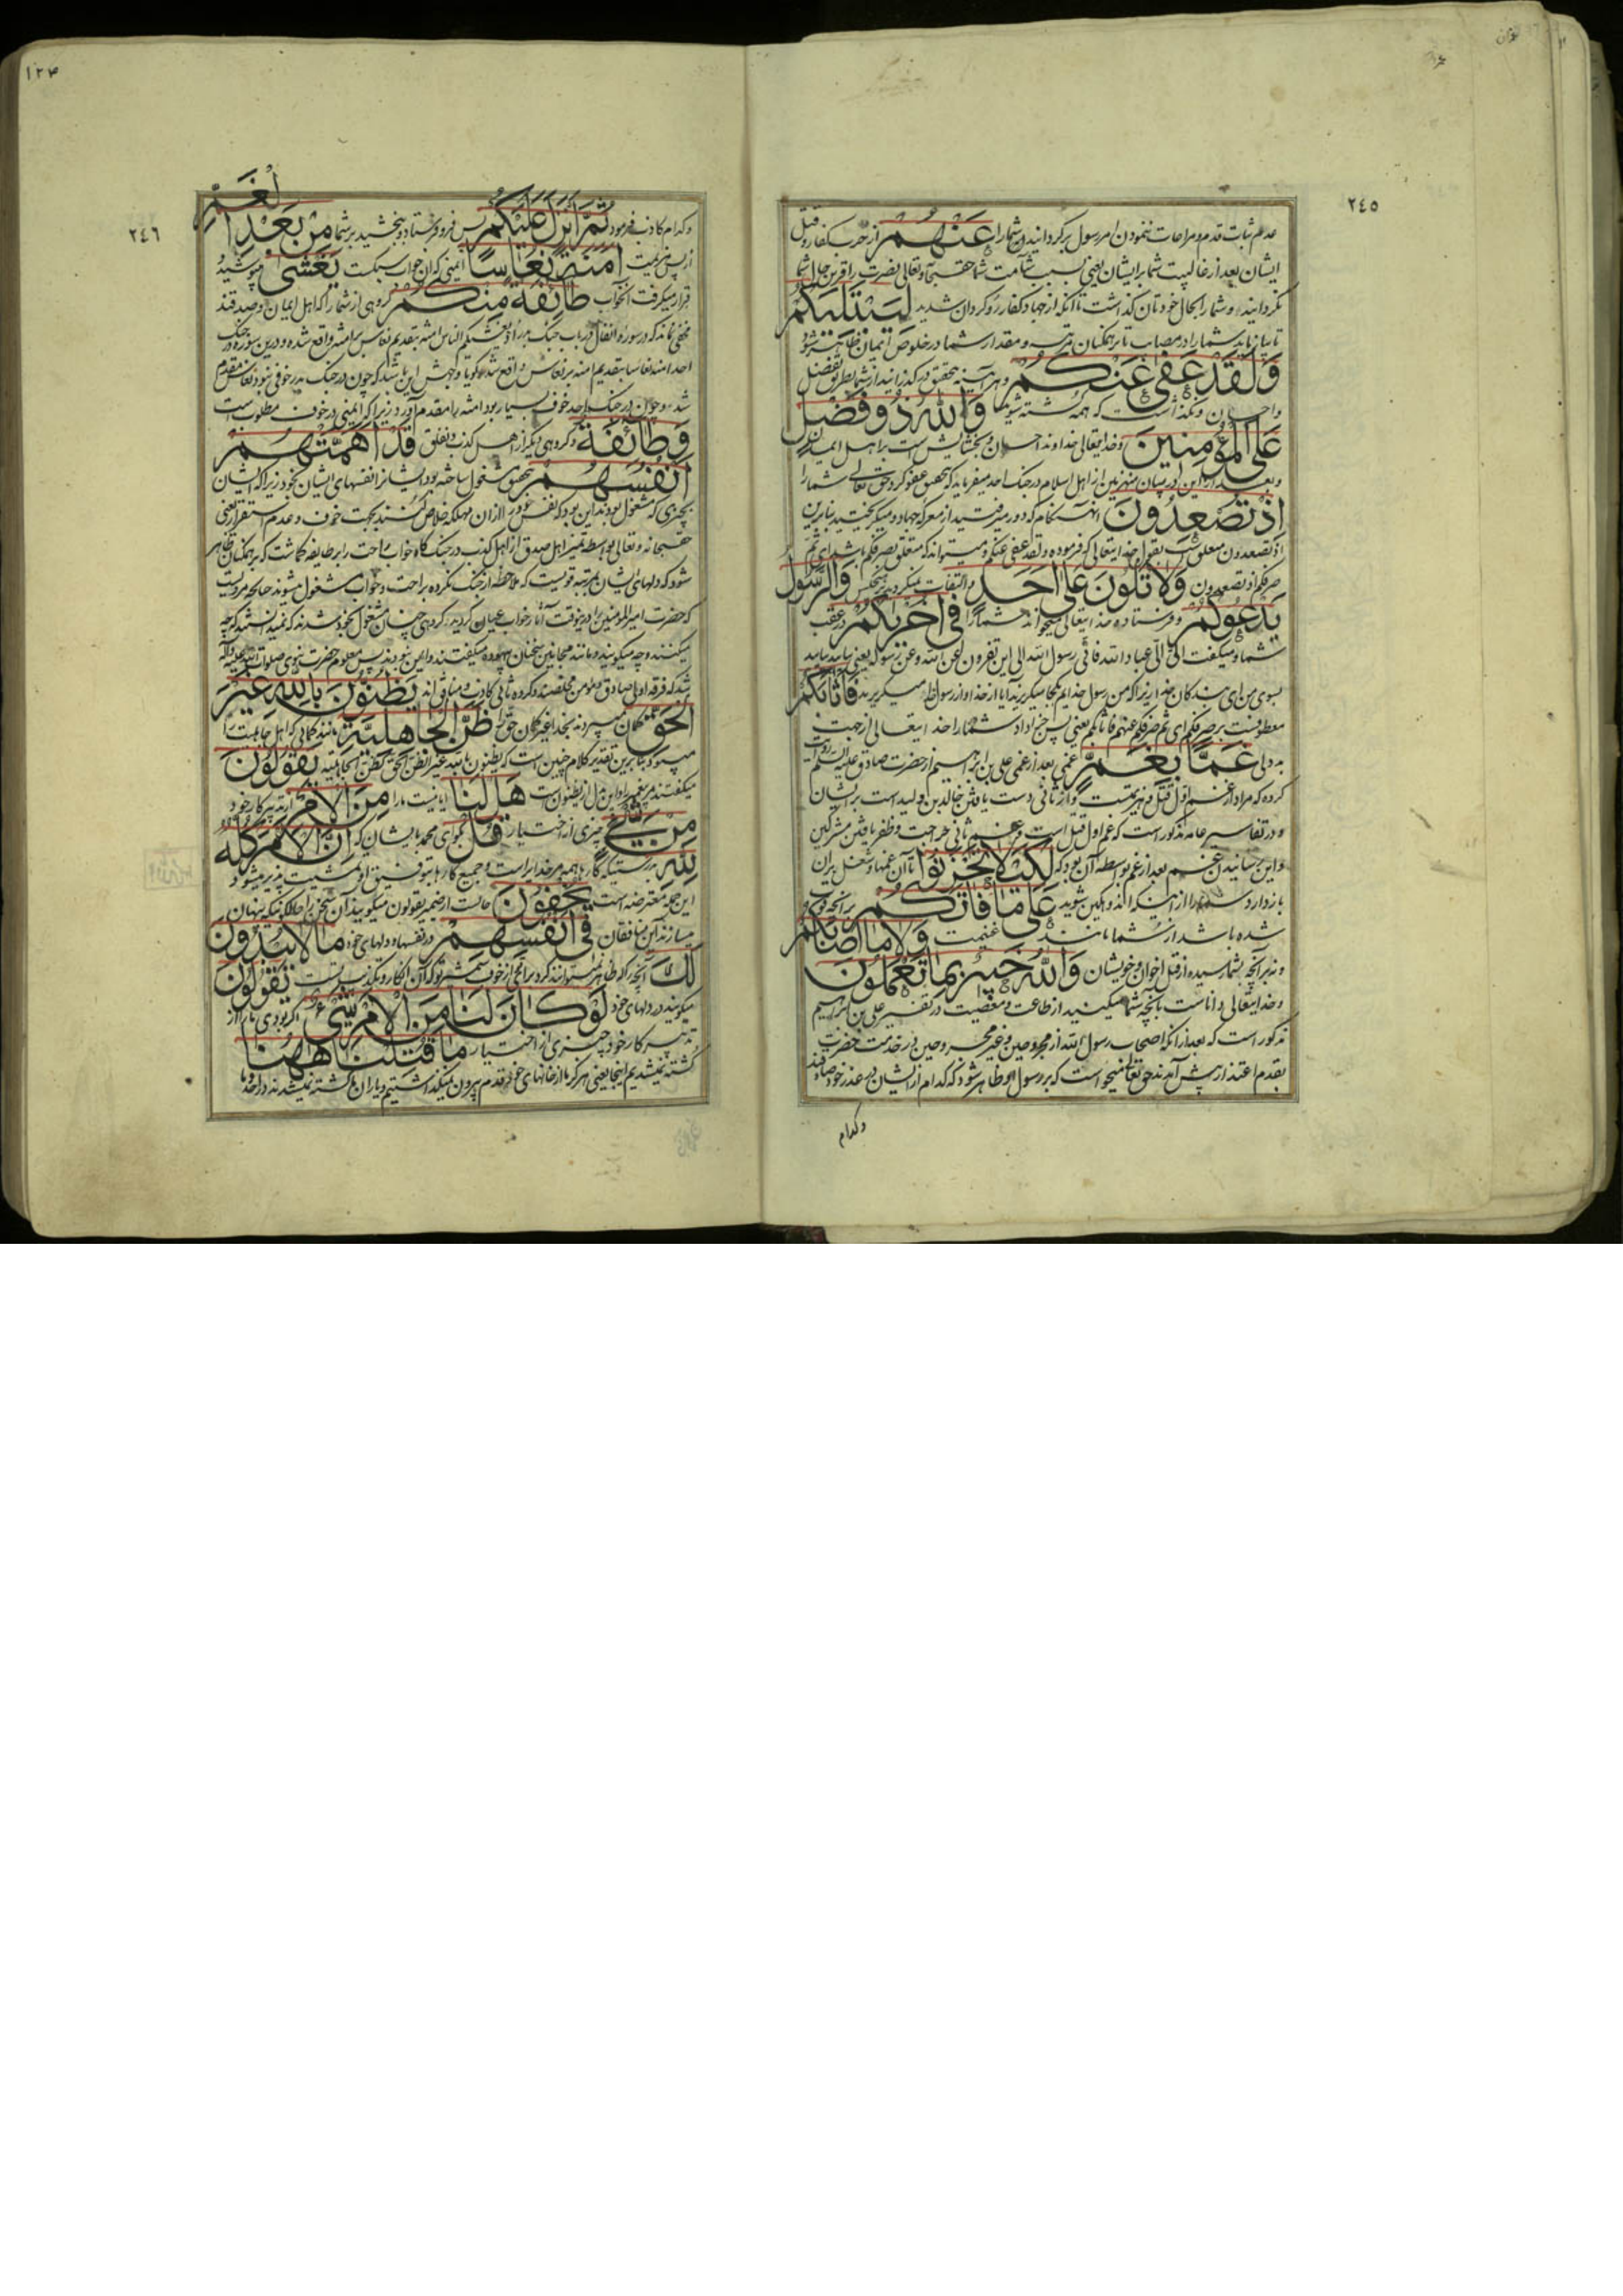 ٢٤٥
عدم ثبات قدم و مراعات ننمودن امر رسول برگردانیدن شمارا عَنْهُمْ از حرب کفار و قتل
ایشان بعد از غالبیت شما بر ایشان یعنی بسبب شآمت شما حقسبحانه و تعالی نصرت را قرین حال شما
نگردانید و شما را بحال خودتان گذاشت تا آنکه از جهاد کفار رو گردان شدید لِيَبْتَلِيَكُمْ
تا بیازماید شما را در مصایب تا بر همکنان مرتبه و مقدار شما در خلوص ایمان ظاهر شود
وَلَقَدْ عَفَى عَنْكُمْ و هر آینه بتحقیق در گذرانید از شما بطریق تفضل
و احسان و نگذاشت که همه کشته شوید وَاللّٰهُ ذُو فَضْلٍ
عَلَى الْمُؤْمِنِينَ و خدایتعالی خداوند احسان و بخشایش است بر اهل ایمان
و بعد از این در بیان منهزمین از اهل اسلام در جنک احد میفرماید که بتحقیق عفو کرد حق تعالی شما را
اِذْ تُصْعِدُونَ آنهنگام که دور میرفتید از معرکه جهاد و میگریختید بنابرین
اذ تصعدون معلق است بقول خدایتعالی که فرموده و لقد عفی عنکم و میتواند که متعلق بصرفکم باشد ای ثم
صرفکم اذ تصعدون وَلَا تَلْوُنَ عَلَى اَحَدٍ و التفات نمیکردید بر هیچکس وَالرَّسُولُ
يَدْعُوكُمْ و فرستاده خدایتعالی میخواند شما را فِي اُخْرٰيكُمْ در عقب
شما و میگفت الیّ الیّ عباد الله فانی رسول الله الی این تفرون عن الله و عن رسوله یعنی بیایید بیایید
بسوی من ای بندگان خدا زیرا که من رسول خدایم بکجا میگریزید آیا از خدا و از رسول خدا میگریزید فَاَثَابَكُمْ
معطوفست بر صرفکم ای ثم صرفکم عنهم فاثابکم یعنی پس جزا داد شما را خدایتعالی از جهت
بد دلی غَمًّا بِغَمٍّ غمی بعد از غمی علی بن ابراهیم از حضرت صادق علیه السلم روایت
کرده که مراد از غم اول قتل و هزیمتست و از ثانی دست یافتن خالد بن ولید است بر ایشان
و در تفاسیر عامه مذکور است که غم اول قتل است و غم ثانی جراحت و ظفر یافتن مشرکین
و این رسانیدن غم بعد از غم بواسطه آن بود که لِكَيْلَا تَحْزَنُوا تا آن غمها و شغل بآن
باز دارد شما را از اینکه اندوهگین شوید عَلَى مَا فَاتَكُمْ بر آنچه فوت
شده باشد از شما مانند غنیمت وَلَا مَا اَصَابَكُمْ
و نه بر آنچه بشما رسیده از قتل اخوان و خویشان وَاللّٰهُ خَبِيرٌ بِمَا تَعْمَلُونَ
و خدایتعالی داناست بآنچه شما میکنید از طاعت و معصیت در تفسیر علی بن ابراهیم
مذکور است که بعد از آنکه اصحاب رسول الله از مجروحین و غیر مجروحین در خدمت حضرت
بقدم اعتذار پیش آمدند حق تعالی میخواست که بر رسول او ظاهر شود که کدام از ایشان در عذر خود صادقند
و کدام
١٢٣
٢٤٦
و کدام کاذب فرمود ثُمَّ اَنْزَلَ عَلَيْكُمْ پس فرو فرستاد و بخشید بر شما مِنْ بَعْدِ الْغَمِّ
از پس هزیمت اَمَنَةً نُعَاسًا ایمنی که آن خواب سبکست يَغْشَى میپوشید و
قرار میگرفت آنخواب طَائِفَةً مِنْكُمْ گروهی از شما را که اهل ایمان و صدقند
مخفی نماند که در سوره انفال در باب جنک بدر اذ یغشیکم النعاس امنة بتقدیم نعاس بر امنه واقع شده و درین سوره در جنک
احد امنة نعاسا بتقدیم امنه بر نعاس واقع شده گویا وجهش این باشد که چون در جنک بدر خوفی نبود نعاس مقدم
شد و چون در جنک احد خوف بسیار بود امنه را مقدم آورد زیرا که ایمنی در خوف مطلوبست
وَطَائِفَةٌ و گروهی دیگر از اهل کذب و نفاق قَدْ اَهَمَّتْهُمْ
اَنْفُسُهُمْ بتحقیق مشغول ساخته بود ایشانرا نفسهای ایشان بخود زیرا که ایشان
بچیزی که مشغول بودند این بود که نفس خود را از آن مهلکه خلاص کنند بجهت خوف و عدم استقرار یعنی
حقسبحانه و تعالی بواسطه تمیز اهل صدق از اهل کذب در جنک گاه خواب راحت را بر طایفه گماشت که بر همکنان ظاهر
شود که دلهای ایشان بمرتبه قویست که ملاحظه از جنک نکرده براحت و خواب مشغول میشوند چنانچه مرویست
که حضرت امیر المومنین را در ینوقت آثار خواب عیان گردید و گروهی چنان مشغول بخود شدند که نمیدانستند که چه
میکنند و چه میگویند و مانند مجانین سخنان بیهوده میگفتند و ایمن نبودند پس معلوم حضرت نبوی صلوات الله علیه و آله
شد که فرقه اولی صادق و مومن مخلصند و گروه ثانی کاذب و منافق اند يَظُنُّونَ بِاللّٰهِ غَيْرَ
الْحَقِّ گمان میبردند بخدا غیر گمان حق را ظَنَّ الْجَاهِلِيَّةِ مانند گمانی که اهل جاهلیت را
میبود بنابرین تقدیر کلام چنین است که یظنون بالله غیر الظن الحق یظن الجاهلیة يَقُولُونَ
میگفتند مر پیغمبر را و این بدل از یظنون است هَلْ لَنَا آیا نیست ما را مِنَ الْاَمْرِ از تدبیر کار خود
مِنْ شَيْءٍ چیزی از اختیار قُلْ بگو ای محمد بایشان که اِنَّ الْاَمْرَ كُلَّهُ
لِلّٰهِ بدرستیکه کارها همه مر خدایراست و جمیع کارها بتوفیق او و مشیت پذیر میشود و
این جمله معترضه است يُخْفُونَ حالست از ضمیر یقولون میگویند آن سخن را حالکونیکه پنهان
میسازند آن منافقان فِي اَنْفُسِهِمْ در نفسها و دلهای خود مَا لَا يُبْدُونَ
لَكَ آنچه را که ظاهر نمیتوانند کرد برای تو از خوف شمشیر تو که آن انکار و تکذیب تست يَقُولُونَ
میگویند در دلهای خود لَوْ كَانَ لَنَا مِنَ الْاَمْرِ شَيْءٌ اگر بودی ما را از
تدبیر کار خود چیزی از اختیار مَا قُتِلْنَا هٰهُنَا
کشته نمیشدیم اینجا یعنی هرگز ما از خانهای خود قدم بیرون نمیگذاشتیم و یاران ما کشته نمیشدند در احد و یا